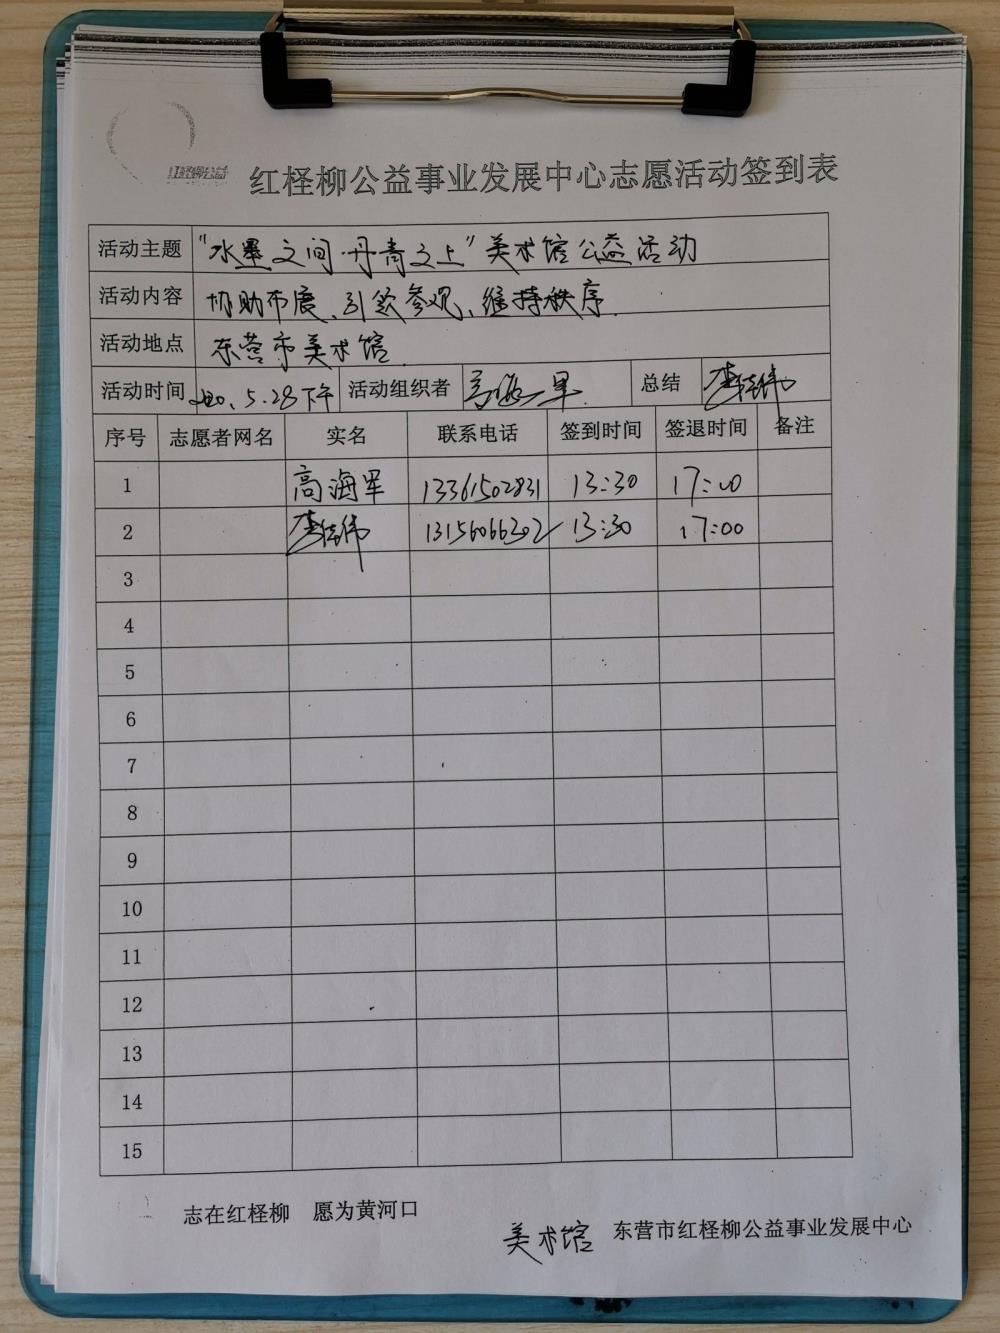 红柽柳公益
红柽柳公益事业发展中心志愿活动签到表
活动主题 "水墨之间·丹青之上"美术馆公益活动
活动内容 协助布展、引领参观、维持秩序.
活动地点 东营市美术馆.
活动时间 2020.5.28下午 活动组织者 高海军 总结 李佳伟
序号 志愿者网名 实名 联系电话 签到时间 签退时间 备注
1 高海军 13361502831 13:30 17:00
2 李佳伟 13156066302 13:30 17:00
3
4
5
6
7
8
9
10
11
12
13
14
15
志在红柽柳 愿为黄河口
美术馆 东营市红柽柳公益事业发展中心